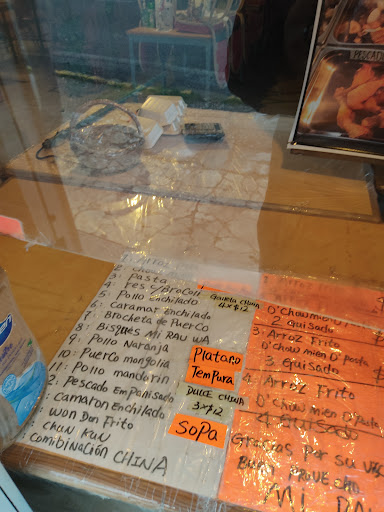 2. Chow
3. Pasta
4. Res y/Brocoli
5. Pollo Enchilado
6. Caramar Enchilado
7. Brocheta de Puerco
8. Bisques Mi RAU WA
9. Pollo Naranja
10. Puerco mongolia
11. Pollo mandarin
2. Pescado Empanisado
camaron Enchilado
won Don Frito
chun Kun
combinación CHINA
Galleta CHINA
4 x $12
Plataro
Tempura
DULCE CHINA
3 x $12
Sopa
O'chowmein
2 guisado
3. Arroz Frito
O'chow mien O'pasta
3 Guisado
4. Arroz Frito
O'chow mien O'pasta
4 Guisado
Gracias por su
Buen Provecho